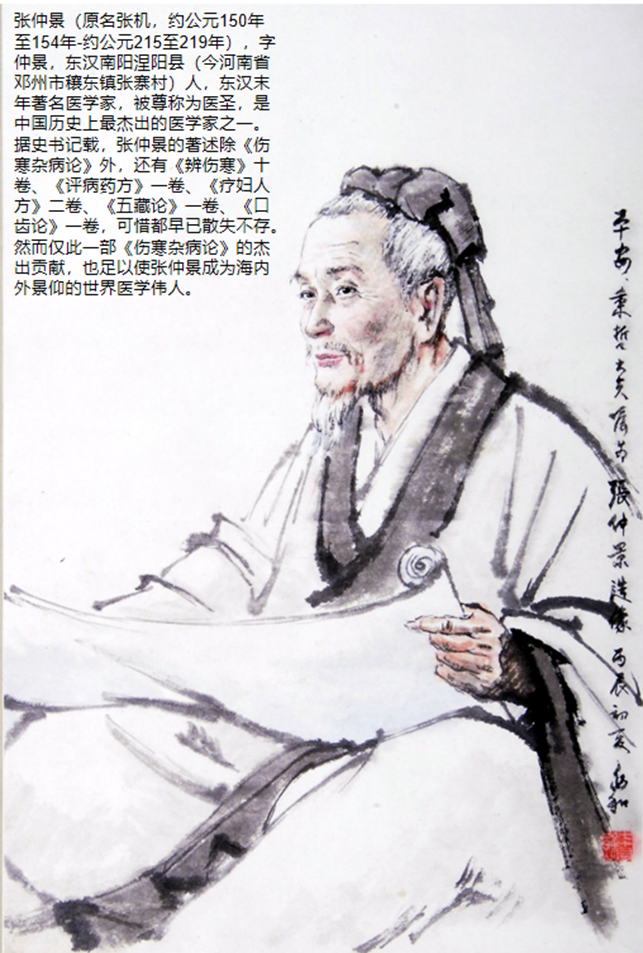 张仲景（原名张机，约公元150年
至154年-约公元215至219年），字
仲景，东汉南阳涅阳县（今河南省
邓州市穰东镇张寨村）人，东汉末
年著名医学家，被尊称为医圣，是
中国历史上最杰出的医学家之一。
据史书记载，张仲景的著述除《伤
寒杂病论》外，还有《辨伤寒》十
卷、《评病药方》一卷、《疗妇人
方》二卷、《五藏论》一卷、《口
齿论》一卷，可惜都早已散失不存。
然而仅此一部《伤寒杂病论》的杰
出贡献，也足以使张仲景成为海内
外景仰的世界医学伟人。
平安 秉哲 張仲景造像 丙辰初夏 和